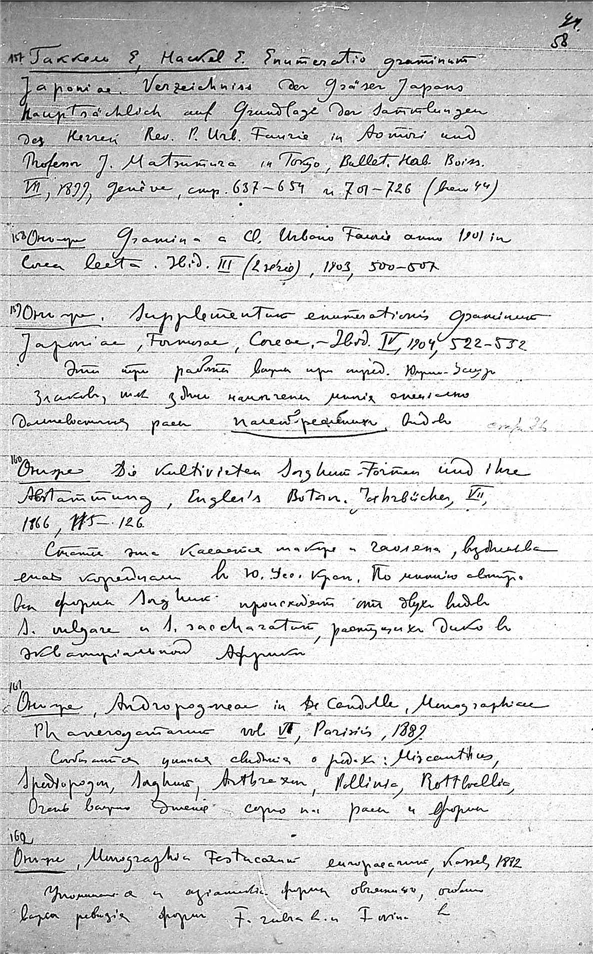 44.
58
157 Гаккель E, Hackel E. Enumeratio graminum
Japoniae. Verzeichniss der Gräser Japans
hauptsächlich auf Grundlage der Sammlungen
des Herren Rev. P. Urb. Faurie in Aomori und
Professor J. Matsumura in Tokyo, Bullet. Hab. Boiss.
VII, 1899, Genève, стр. 637–654 и 701–726
158 Он же Gramina a Cl. Urbano Faurie anno 1901 in
Corea lecta. Ibid. III (2 série), 1903, 500–507
159 Он же. Supplementum enumerationis graminum
Japoniae, Formosae, Coreae, – Ibid. IV, 1904, 522–532
Эти три работы важны при
Злаков, так
расы видов
160 Он же Die kultivirten Sorghum-Formen und ihre
Abstammung, Engler's Botan. Jahrbücher, VII,
1866, 115–126
Статья эта касается также и гаоляна,
корейцами в Ю. Усс. крае. По мнению автора
все формы Sorghum происходят от двух видов
S. vulgare и S. saccharatum, растущих дико в
экваториальной Африке
161
Он же, Andropogoneae in De Candolle, Monographiae
Phanerogamarum vol VI, Parisiis, 1889
ценные сведения о родах: Miscanthus,
Spodiopogon, Sorghum, Arthraxon, Pollinia, Rottboellia,
Очень важно расы и формы
162
Он же, Monographia Festucarum europaearum, Kassel, 1882
и формы овсяниц,
форм F. rubra L. и F. ovina L